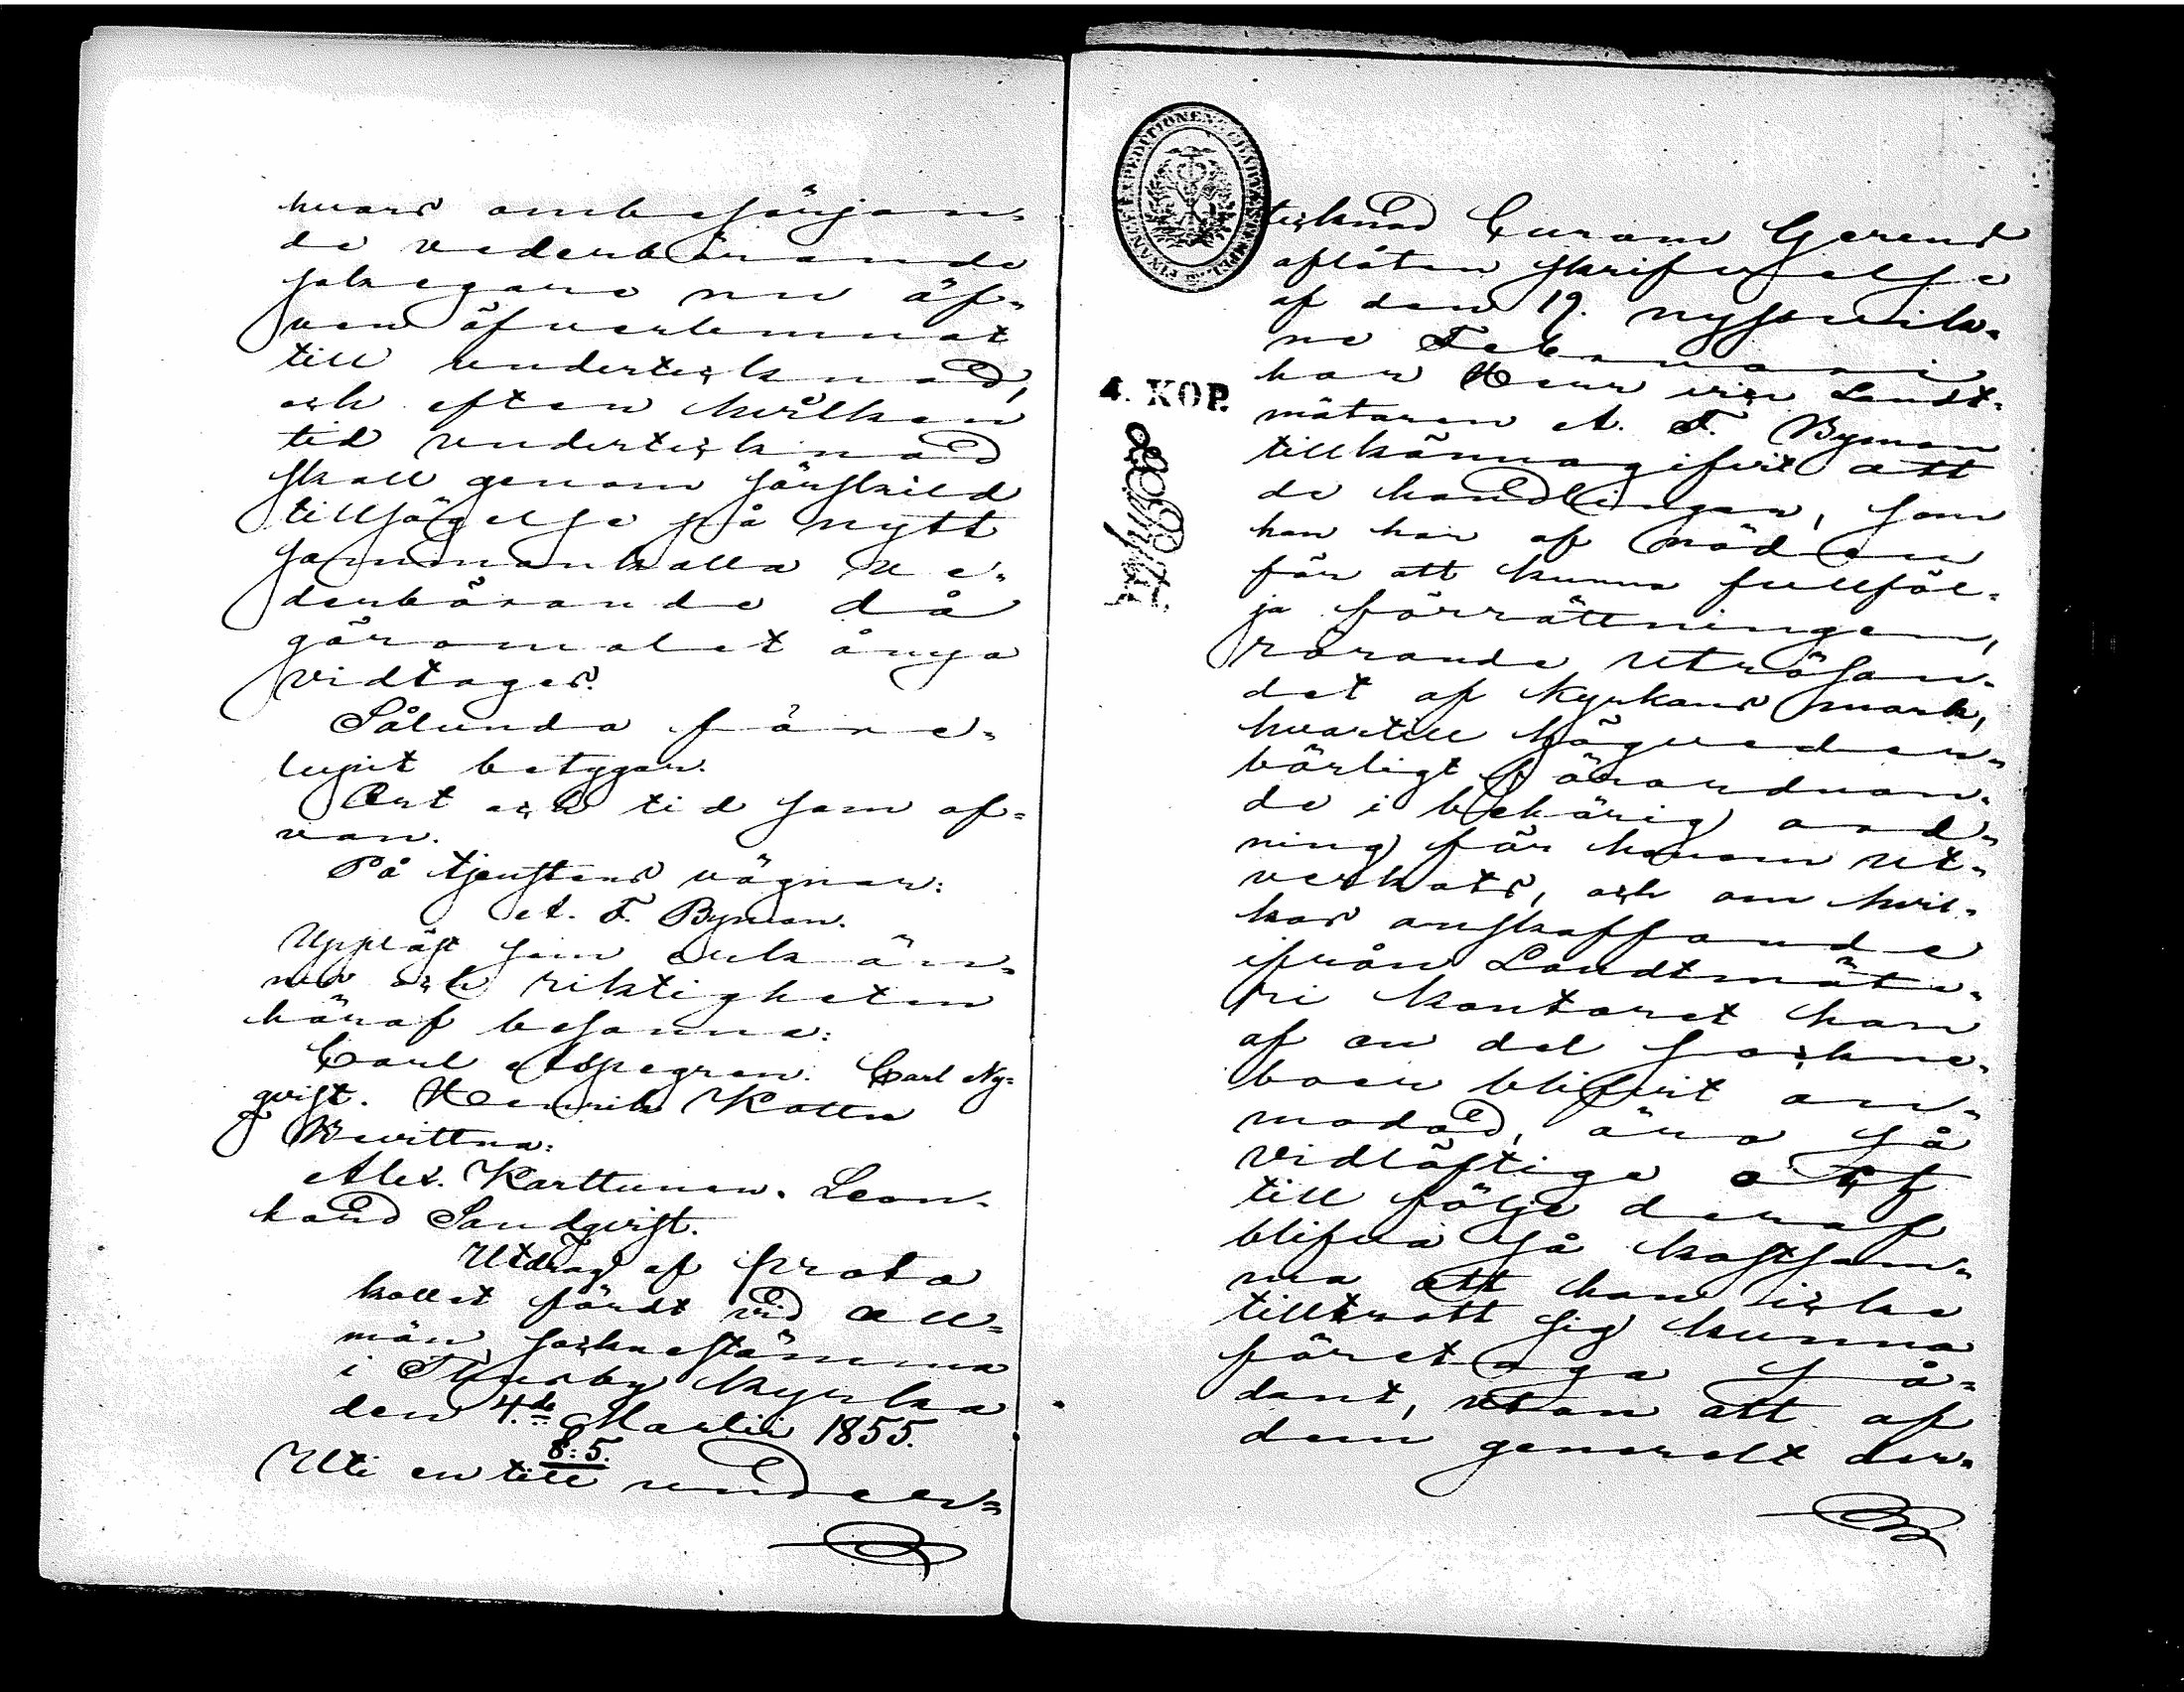 hvars ombesörjan-
de vederbörande
sakegare nu äf-
ven öfverlemnat
till undertecknad,
och efter hvilken
tid undertecknad
skall genom särskild
tillsägelse på nytt
sammankalla ve-
derbörande då
göromålet ånyo
vidtages.
Sålunda före-
lupit betygar.
Ort och tid som of-
van.
På tjenstens vägnar:
A. F. Byman.
Uppläst som erkän-
nes och riktigheten
häraf besanna:
Carl Aspegren. Carl Ny-
qvist. Henrik Kottu
Bevittna:
Alex. Karttunen. Leon-
hard Sandqvist.
Utdrag af proto
kollet fördt vid all-
män socknestämma
i Thusby kyrka
den 4.de Martii 1855.
§: 5.
Uti en till under-
FINANCE EXPEDITIONENS CHARTÆ STEMPEL
4. KOP.
tecknad Curam Gerens
aflåten skrifvelse
af den 19. nyssvik-
ne Februari
har Herr vice Landt-
mätaren A. F. Byman
tillkännagifvit att
de handlingar, som
han har af nöden
för att kunna fullföl-
ja förrättningen,
rörande utrösan-
det af Kyrkans mark,
hvartill högveder-
börligt förordnan-
de i behörig ord-
ning för honom ut-
verkats, och om hvil-
kas anskaffande
ifrån Landtmäte-
ri kontoret han
af en del sockne-
boer blifvit an-
modad, äro så
vidlöftige och
till följe deraf
blifva så kostsam-
ma att han icke
tilltrott sig kunna
företaga så-
dant, utan att af
dem generelt der-